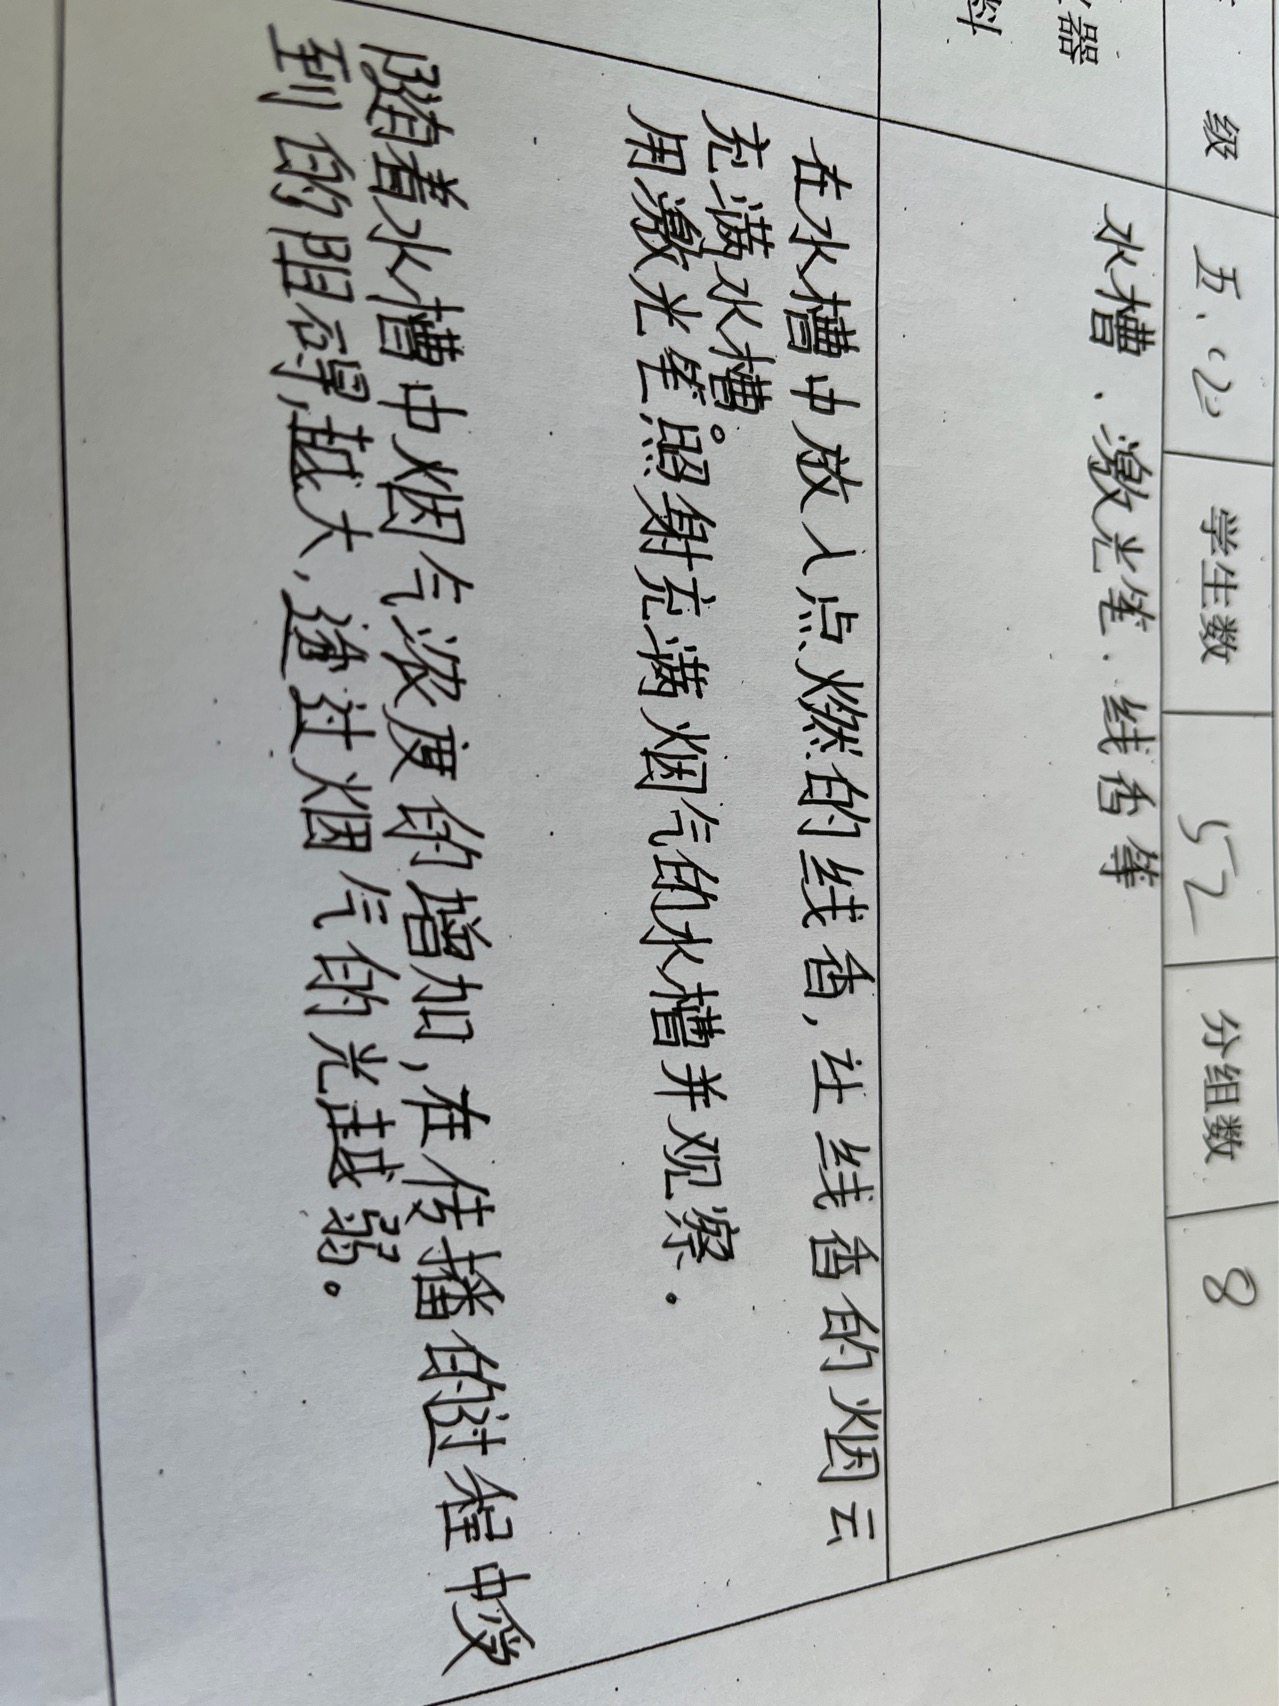 级 五、(2) 学生数 52 分组数 8
器
料
水槽、激光笔、线香等
在水槽中放入点燃的线香,让线香的烟云
充满水槽。
用激光笔照射充满烟气的水槽并观察.
随着水槽中烟气浓度的增加,在传播的过程中受
到的阻碍越大,透过烟气的光越弱.